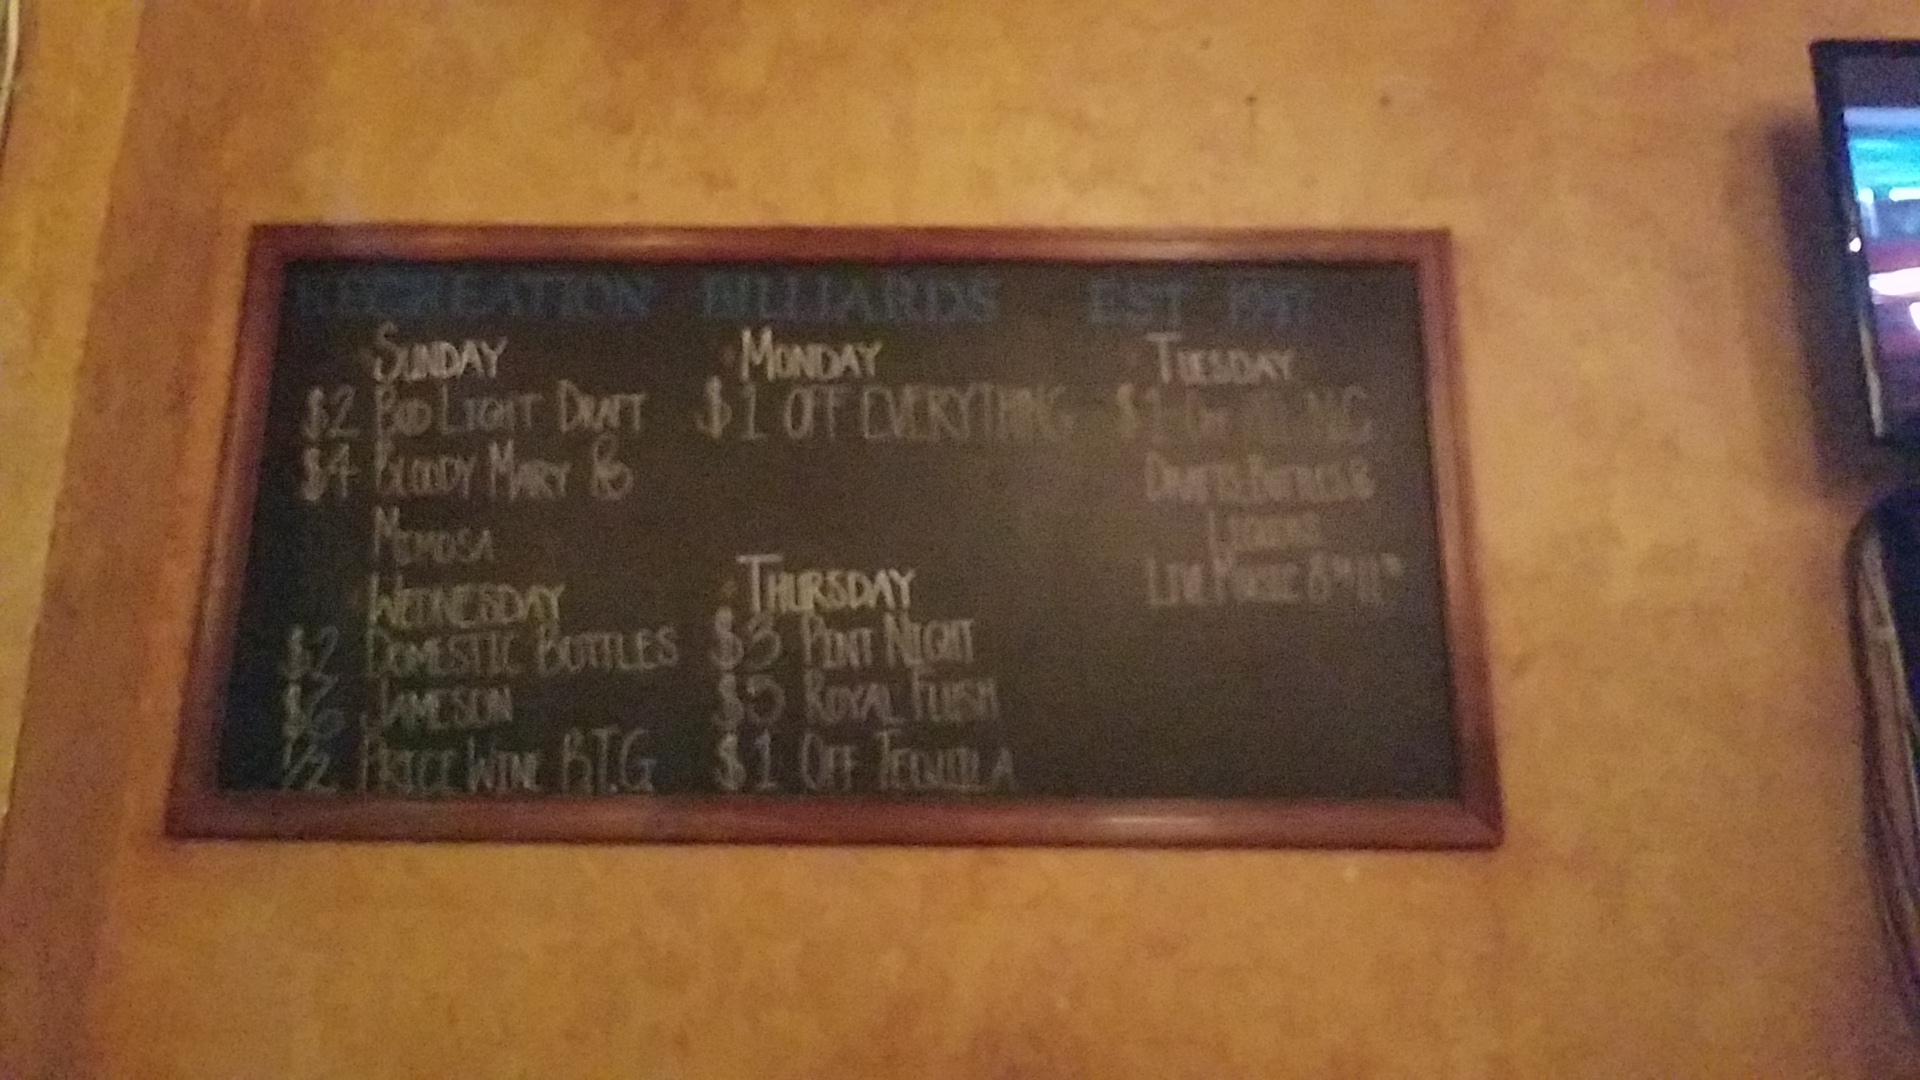 RECREATION BILLIARDS EST
SUNDAY
$2 BUD LIGHT DRAFT
$4 BLOODY MARY
MIMOSA
MONDAY
$1 OFF EVERYTHING
TUESDAY
$1 OFF NC
DRAFTS, BOTTLES &
LIQUORS
LIVE MUSIC
WEDNESDAY
$2 DOMESTIC BOTTLES
JAMESON
1/2 PRICE WINE B.T.G
THURSDAY
$3 PINT NIGHT
$5 ROYAL FLUSH
$1 OFF TEQUILA